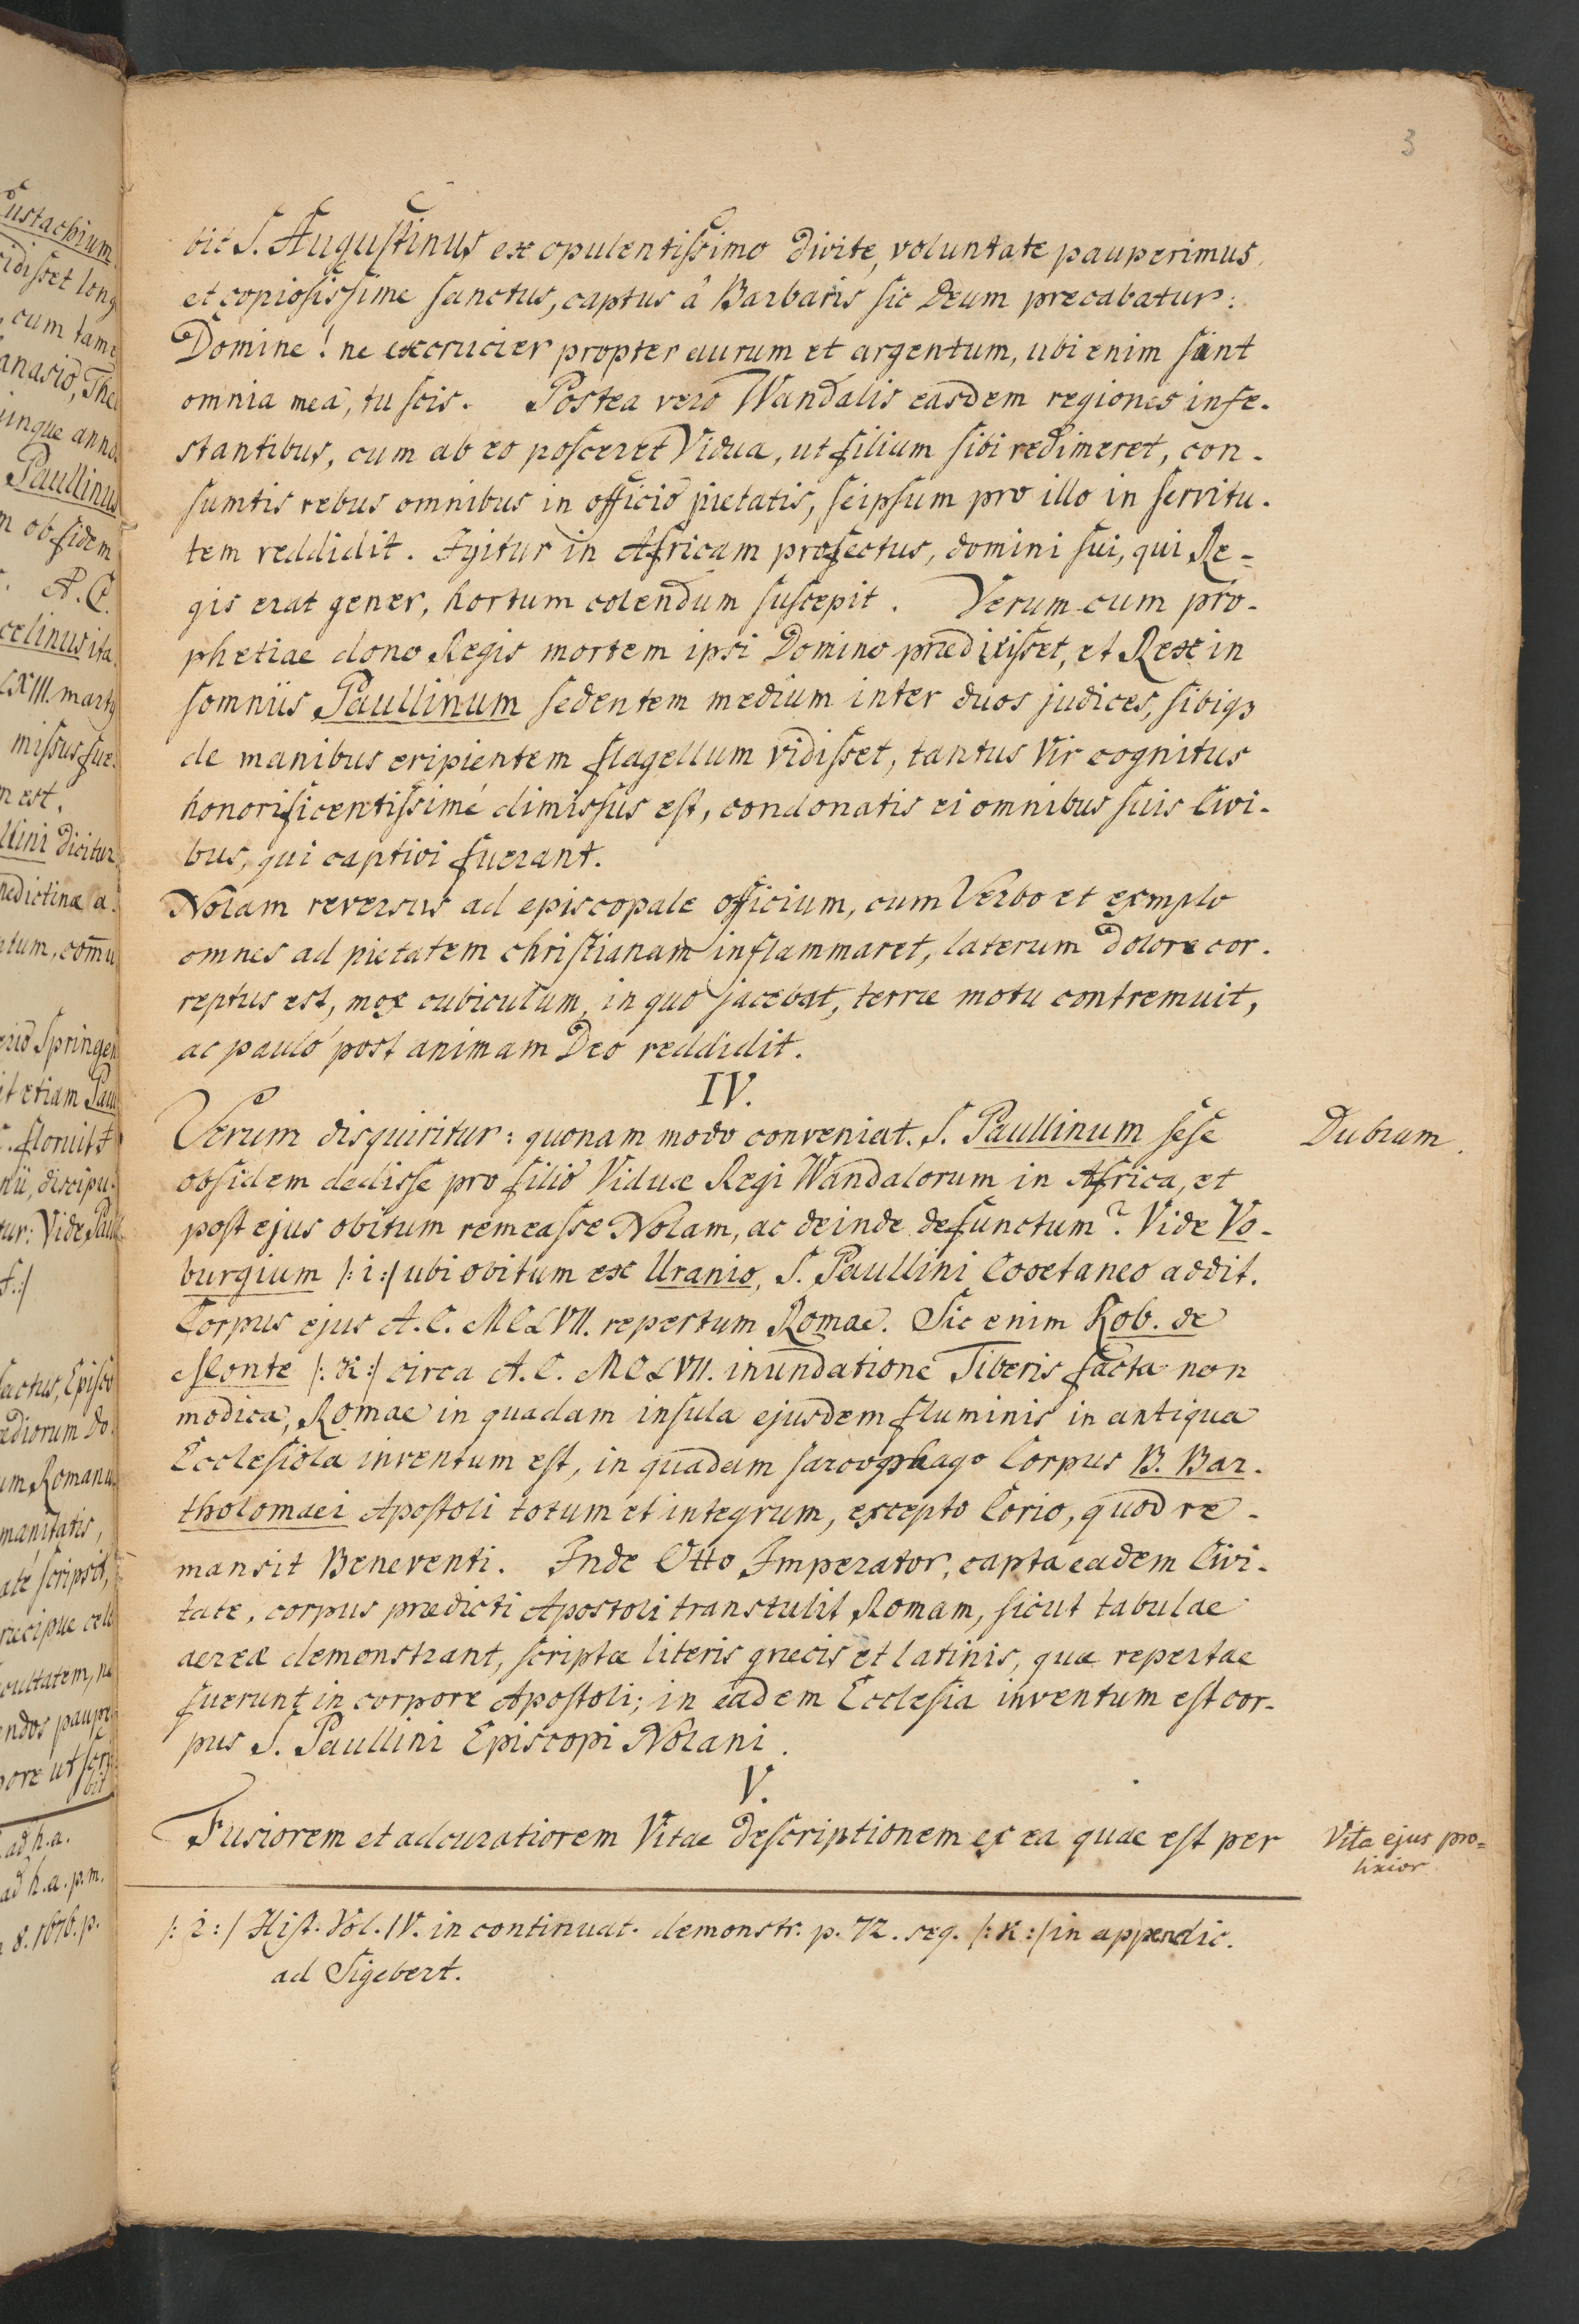 3
bit S. Augustinus ex opulentissimo divite, voluntate pauperimus
et copiosissime sanctus, captus â Barbaris sic Deum precabatur:
Domine! ne excrucier propter aurum et argentum, ubi enim sint
omnia mea, tu scis. Postea vero Wandalis easdem regiones infe-
stantibus, cum ab eo posceret Vidua, ut filium sibi redimeret, con-
sumtis rebus omnibus in officio pietatis, seipsum pro illo in servitu-
tem reddidit. Igitur in Africam profectus, domini sui, qui Re-
gis erat gener, hortum colendum suscepit. Verum cum pro-
phetiae dono Regis mortem ipsi Domino prædixisset, et Rex in
somniis Paullinum sedentem medium inter duos judices, sibiqȝ
de manibus eripientem flagellum vidisset, tantus Vir cognitus
honorificentissimé dimissus est, condonatis ei omnibus suis Civi-
bus, qui captivi fuerant.
Nolam reversus ad episcopale officium, cum Verbo et exmplo
omnes ad pietatem christianam inflammaret, laterum dolore cor-
reptus est, mox cubiculum, in quo jacebat, terræ motu contremuit,
ac pauló post animam Deo reddidit.
IV.
Verum disquiritur: quonam modo conveniat. S. Paullinum sese
Dubium.
obsidem dedisse pro filio Viduæ Regi Wandalorum in Africa, et
post ejus obitum remeasse Nolam, ac deinde defunctum? Vide Vo-
burgium /: i :/ ubi obitum ex Uranio, S. Paullini Coœtaneo addit.
Corpus ejus A. C. MCLVII. repertum Romae. Sic enim Rob. de
Monte /: K :/ circa A. C. MCLVII. inundatione Tiberis facta non
modica, Romae in quadam insula ejusdem fluminis in antiqua
Ecclesiola inventum est, in quadam sarcophago Corpus B. Bar-
tholomaei Apostoli totum et integrum, excepto Corio, quod re-
mansit Beneventi. Inde Otto Imperator, capta eadem Civi-
tate, corpus prædicti Apostoli transtulit Romam, sicut tabulae
aereæ demonstrant, scriptæ literis græcis et latinis, quæ repertae
fuerunt in corpore Apostoli; in eadem Ecclesia inventum est cor-
pus S. Paullini Episcopi Nolani.
V.
Fusiorem et adcuratiorem Vitae descriptionem ex ea quae est per
Vita ejus pro=
lixior
/: i :/ Hist. Vol. IV. in continuat. demonstr. p. 72. seq. /: K :/ in appendic.
ad Sigebert.